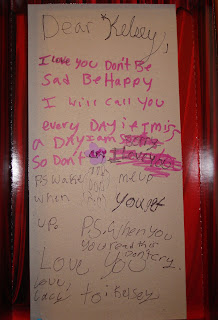 Dear Kelsey,
I love you Don't Be
Sad Be Happy
I will call you
every DAY if I miss
a DAY I am
So Don't cry I Love you
P.S. wake me up
when you get
up.
P.S. When you
you read this
Love You Don't cry.
Love,
to: Kelsey